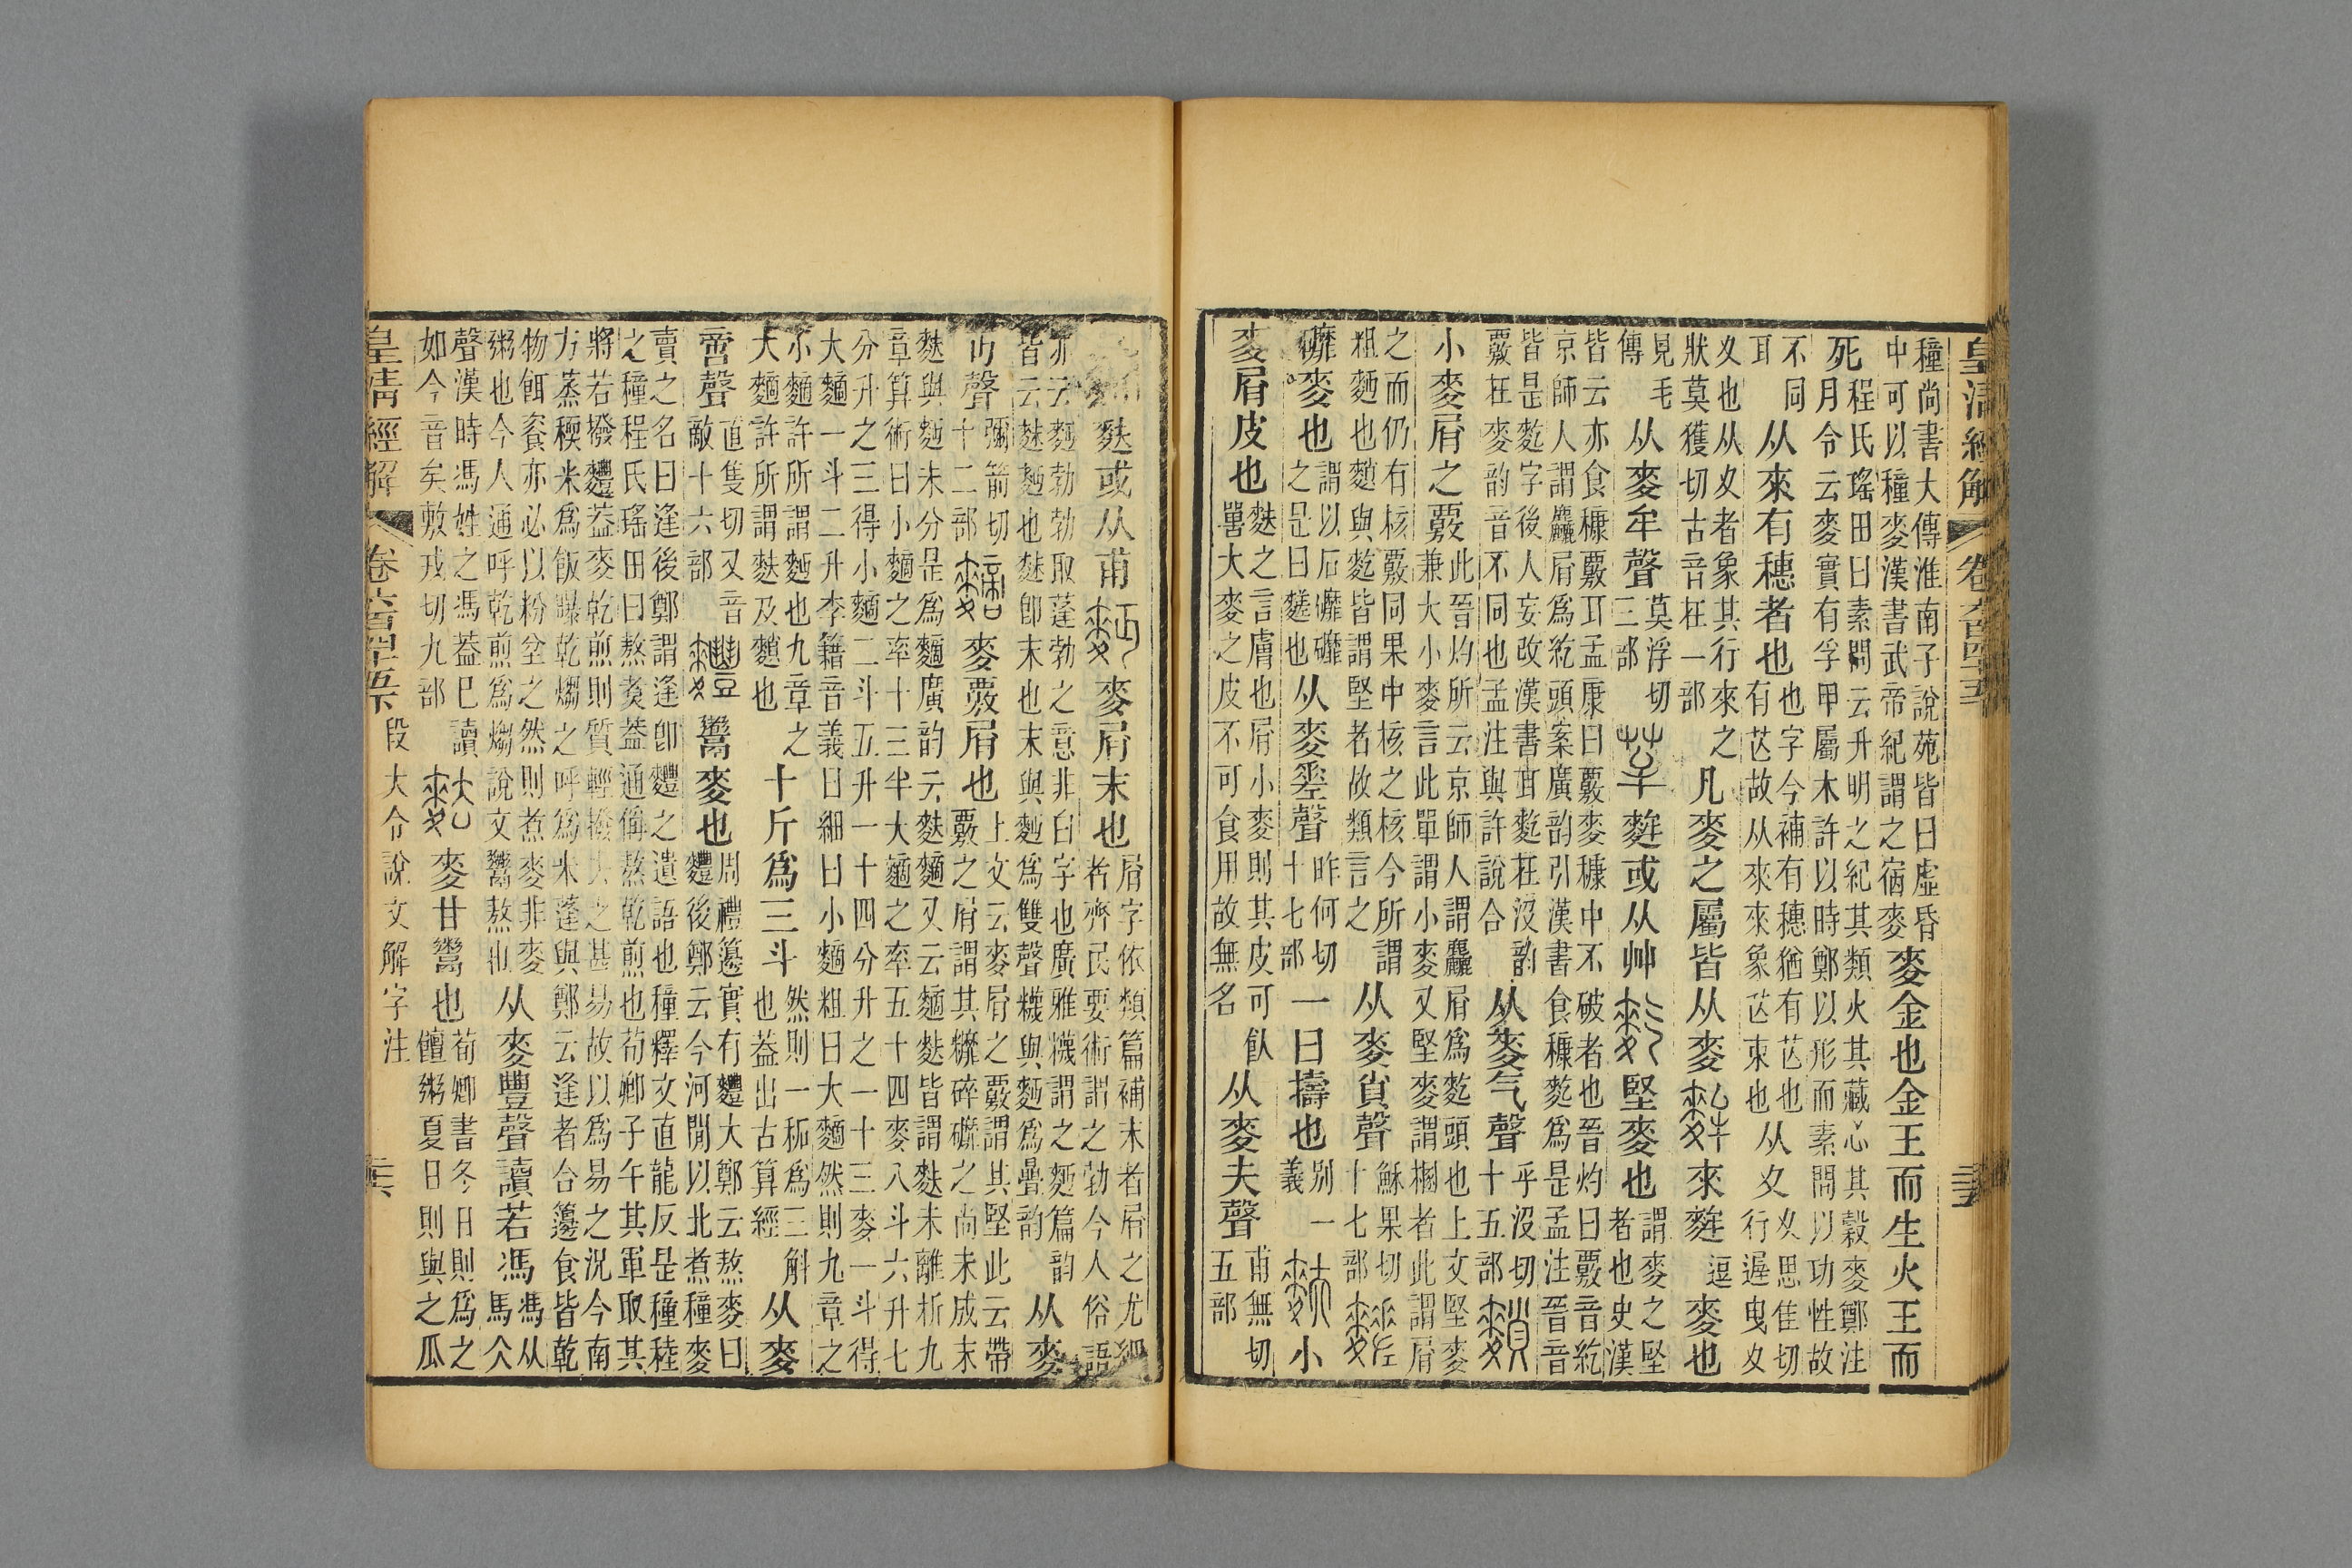 皇清經解 卷六百四十五
種尚書大傳淮南子說苑皆曰虛昏中可以種麥漢書武帝紀謂之宿麥麥金也金王而生火王而
死程氏瑤田曰素問云升明之紀其類火其藏心其穀麥鄭注月令云麥實有孚甲屬木許以時鄭以形而素問以功性故
不同耳从來有穗者也也字今補有穗猶有芒也有芒故从來來象芒朿也从夊夊思隹切行遲曳夊
夊也从夊者象其行來之狀莫獲切古音在一部凡麥之屬皆从麥來麰逗麥也
見毛傳从麥牟聲莫浮切三部麰或从艸堅麥也謂麥之堅者也史漢
皆云亦食穅覈耳孟康曰覈麥穅中不破者也晉灼曰覈音紇京師人謂麤屑爲紇頭案廣韵引漢書食穅麧爲是孟注晉音
皆是麧字後人妄改漢書耳麧在沒韵覈在麥韵音不同也孟注與許說合从麥气聲乎沒切十五部
小麥屑之覈此晉灼所云京師人謂麤屑爲麧頭也上文堅麥兼大小麥言此單謂小麥又堅麥謂梱者此謂屑
之而仍有核覈同果中核之核今所謂粗麪也䴹與麧皆謂堅者故類言之从麥𧴪聲穌果切十七部
䃺麥也謂以石䃺䃺之是曰䴾也从麥𡍮聲昨何切十七部一曰擣也別一義小
麥屑皮也麩之言膚也屑小麥則其皮可飤大麥之皮不可食用故無名从麥夫聲甫無切五部
麩或从甫麥屑末也屑字依類篇補末者屑之尤細者齊民要術謂之勃今人俗語
亦云麪勃勃取蓬勃之意非白字也廣雅䊳謂之麪篇韵皆云䴲麪也䴲卽末也末與麪爲雙聲䊳與麪爲疊韵从麥
丏聲彌箭切十二部麥覈屑也上文云麥屑之覈謂其堅此云帶覈之屑謂其䊳碎䃺之尚未成末
麩與麪未分是爲䵂廣韵云麩䵂又云䵂麩皆謂麩未離析九章算術曰小䵂之率十三半大䵂之率五十四麥八斗六升七
分升之三得小䵂二斗五升一十四分升之一十三麥一斗得
大䵂一斗二升李籍音義曰細曰小䵂粗曰大䵂然則九章之
小䵂許所謂麪也九章之大䵂許所謂麩及䴹也十斤爲三斗然則一秳爲三斛也葢出古算經从麥
啻聲直隻切又音敵十六部䰞麥也周禮籩實有麷大鄭云熬麥曰麷後鄭云今河閒以北煮種麥
賣之名曰逢後鄭謂逢卽麷之遺語也種釋文直龍反是種稑之種程氏瑤田曰熬煑葢通偁熬乾煎也荀卿子午其軍取其
將若撥麷葢麥乾煎則質輕撥去之甚易故以爲易之況今南方蒸稬米爲飯曝乾煼之呼爲米蓬與鄭云逢者合籩食皆乾
物餌餈亦必以粉坌之然則煮麥非麥粥也今人通呼乾煎爲煼說文䰞熬也从麥豐聲讀若馮馮从馬仌
聲漢時馮姓之馮葢巳讀如今音矣敷戎切九部麥甘䰞也荀卿書冬日則爲之饘粥夏日則與之瓜
皇清經解 卷六百四十五下 段大令說文解字注 三六